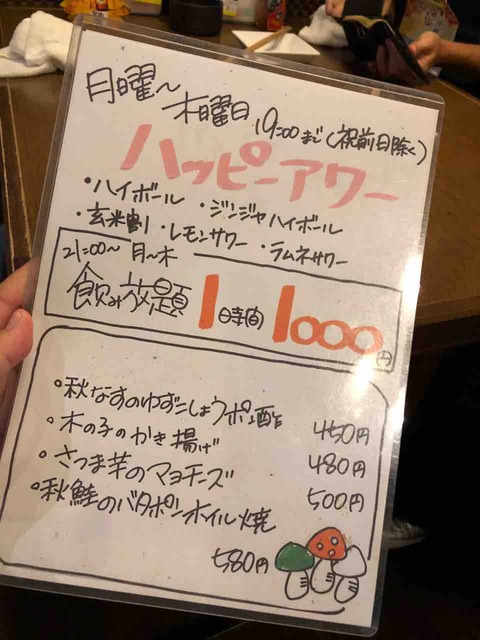 月曜〜
木曜日 19:00まで(祝前日除く)
ハッピーアワー
・ハイボール ・ジンジャハイボール
・玄米割 ・レモンサワー ・ラムネサワー
21:00〜 月〜木
飲み放題 1時間 1000円
・秋なすのゆずこしょうポン酢 450円
・木の子のかき揚げ 480円
・さつま芋のマヨチーズ 500円
・秋鮭のバタポンホイル焼
580円